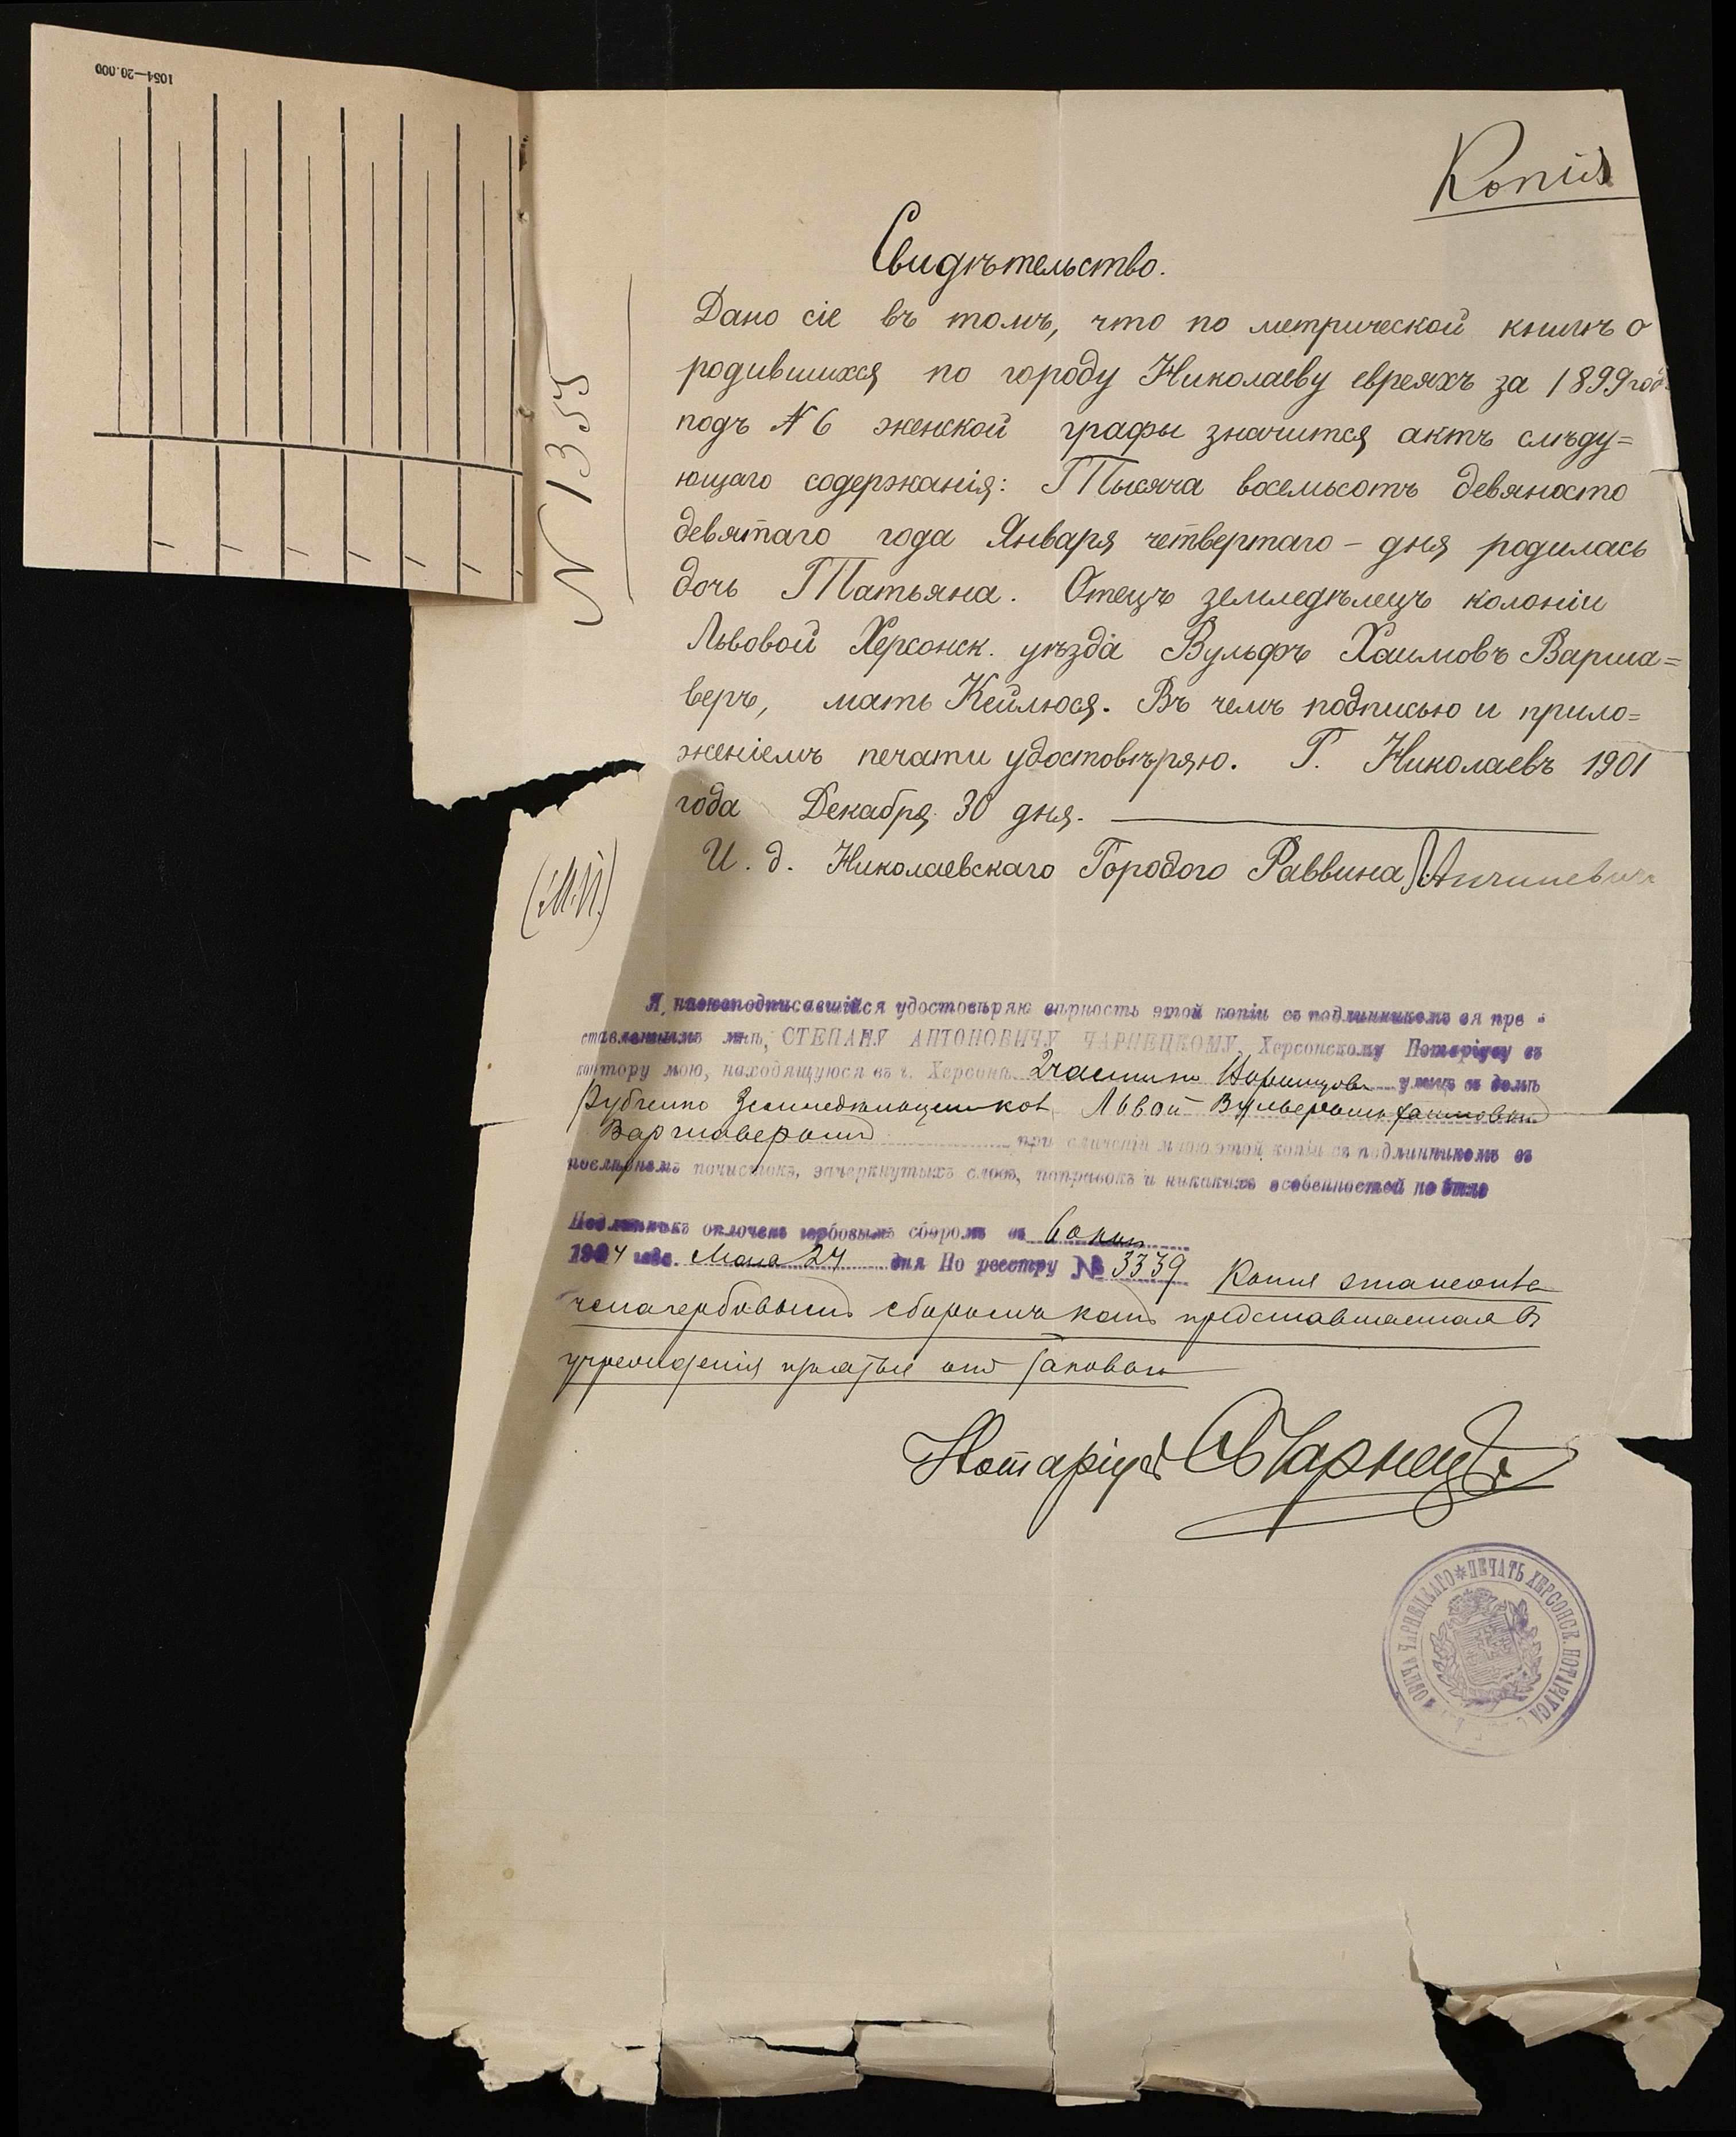 1054—20.000
Копія
Свидѣтельство.
Дано сіе въ томъ, что по метрической книгѣ о
родившихся по городу Николаеву евреяхъ за 1899 год
подъ № 6 женской графы значится актъ слѣду=
ющаго содержанія: Тысяча восемьсотъ девяносто
девятаго года Января четвертаго – дня родилась
дочь Татьяна. Отецъ земледѣлецъ колоніи
Львовой Херсонск. уѣзда Вульфъ Хаимовъ Варша=
веръ, мать Кейлюся. Въ чемъ подписью и прило=
женіемъ печати удостовѣряю. Г. Николаевъ 1901
года Декабря 30 дня.
И. д. Николаевскаго Городого Раввина
N 1355
(М.П.)
Я, нижеподписавшійся удостовѣряю вѣрность этой копіи съ подлинникомъ ея пре-
ставленнымъ мнѣ, СТЕПАНУ АНТОНОВИЧУ ЧАРНЕЦКОМУ, Херсонскому Нотаріусу въ
контору мою, находящуюся въ г. Херсонѣ 2 части по улицѣ въ домѣ
Рубченко Львой
Варшаверомъ при сличеніи мною этой копіи съ подлинникомъ въ
послѣднемъ почистокъ, зачеркнутыхъ словъ, поправокъ и никакихъ особенностей не было
Подлинникъ оплоченъ гербовымъ сборомъ въ
1904 года. Мая 24 дня По реестру № 3339 Копія
гербовымъ сборомъ
Нотаріусъ СЧарнецкій
ПЕЧАТЬ ХЕРСОНСК. НОТАРІУСА ОВИЧА ЧАРНЕЦКАГО